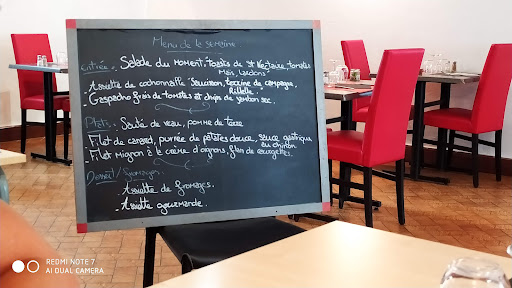 Menu de la semaine
Entrée: Salade du moment, toasts de St Nectaire, tomates
Maïs, Lardons
Assiette de cochonnaille Saucisson, terrine de campagne,
Rillette.
Gaspacho frais de tomates et chips de jambon sec.
Plats: Sauté de veau, pomme de terre
Filet de canard, purée de patates douce, sauce gastrique
au chinon
Filet Mignon à la crème d'oignons, flan de courgettes.
Dessert/fromages.
- Assiette de fromages.
- Assiette gourmande.
REDMI NOTE 7
AI DUAL CAMERA